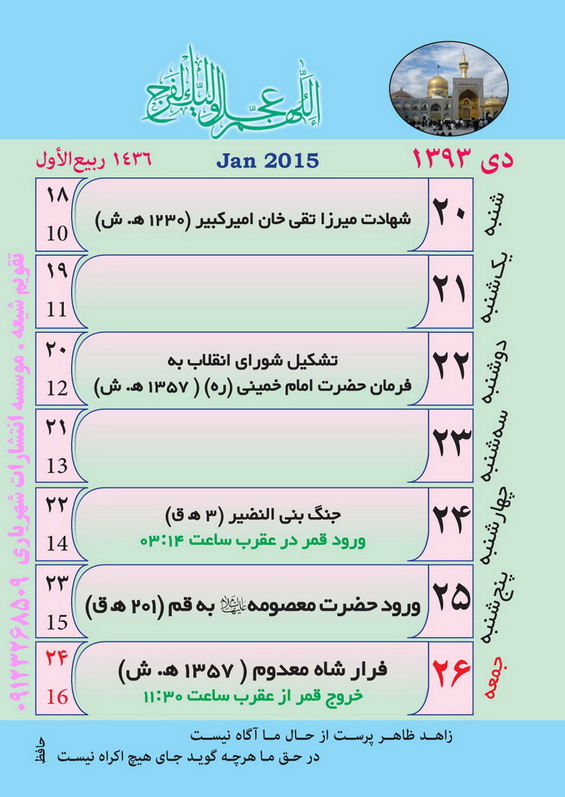 اللّهم عجل لولیك الفرج
دی ۱۳۹۳
Jan 2015
۱۴۳۶ ربیع‌الأول
شنبه
۲۰
شهادت میرزا تقی خان امیرکبیر (۱۲۳۰ ه‍. ش)
۱۸
10
یک شنبه
۲۱
۱۹
11
دوشنبه
۲۲
تشکیل شورای انقلاب به
فرمان حضرت امام خمینی (ره) ( ۱۳۵۷ ه‍. ش)
۲۰
12
سه شنبه
۲۳
۲۱
13
چهارشنبه
۲۴
جنگ بنی النضیر (۳ ه‍ ق)
ورود قمر در عقرب ساعت ۰۳:۱۴
۲۲
14
پنج شنبه
۲۵
ورود حضرت معصومه علیهاالسلام به قم (۲۰۱ ه‍ ق)
۲۳
15
جمعه
۲۶
فرار شاه معدوم ( ۱۳۵۷ ه‍. ش)
خروج قمر از عقرب ساعت ۱۱:۳۰
۲۴
16
تقویم شیعه . موسسه انتشارات شهریاری ۰۹۱۲۳۲۶۸۵۰۹
زاهـد ظاهـر پرسـت از حـال مـا آگاه نیسـت
در حـق مـا هرچـه گویـد جـای هیچ اکراه نیسـت
حافظ